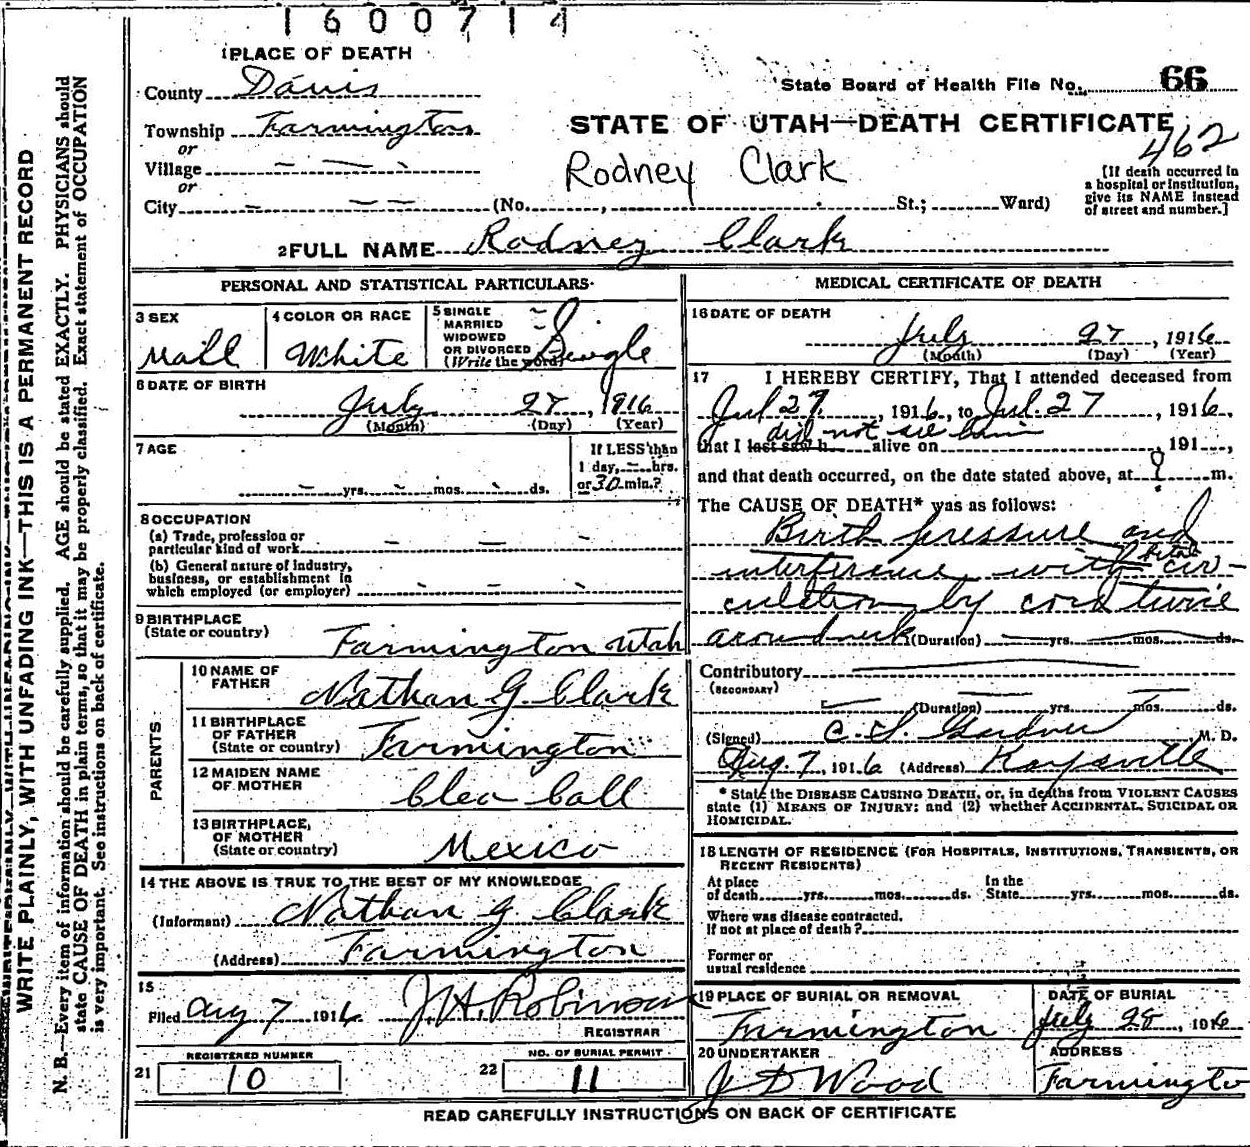 1600714
1 PLACE OF DEATH
County Davis
State Board of Health File No. 66
Township Farmington
or
STATE OF UTAH—DEATH CERTIFICATE
462
Village — — —
or
Rodney Clark
[If death occurred in
a hospital or institution,
give its NAME instead
of street and number.]
City — — — (No. , St.; Ward)
2 FULL NAME Rodney Clark
PERSONAL AND STATISTICAL PARTICULARS
3 SEX
Male
4 COLOR OR RACE
White
5 SINGLE
MARRIED
WIDOWED
OR DIVORCED
(Write the word)
Single
6 DATE OF BIRTH
July 27, 1916
(Month) (Day) (Year)
7 AGE
— yrs. — mos. — ds.
If LESS than
1 day, — hrs.
or 30 min.?
8 OCCUPATION
(a) Trade, profession or
particular kind of work — — —
(b) General nature of industry,
business, or establishment in
which employed (or employer) — — —
9 BIRTHPLACE
(State or country) Farmington Utah
PARENTS
10 NAME OF
FATHER Nathan G. Clark
11 BIRTHPLACE
OF FATHER
(State or country) Farmington
12 MAIDEN NAME
OF MOTHER Cleo Call
13 BIRTHPLACE,
OF MOTHER
(State or country) Mexico
14 THE ABOVE IS TRUE TO THE BEST OF MY KNOWLEDGE
(Informant) Nathan G Clark
(Address) Farmington
15
Filed Aug 7 1916 J. H. Robinson
REGISTRAR
21 REGISTERED NUMBER
10
22 NO. OF BURIAL PERMIT
11
MEDICAL CERTIFICATE OF DEATH
16 DATE OF DEATH
July 27, 1916
(Month) (Day) (Year)
17 I HEREBY CERTIFY, That I attended deceased from
Jul 27, 1916, to Jul. 27, 1916,
did not see him
that I last saw h alive on , 191 ,
and that death occurred, on the date stated above, at ? m.
The CAUSE OF DEATH* was as follows:
Birth pressure and
interference with fetal cir-
culation by cord twice
around neck (Duration) — yrs. — mos. — ds.
Contributory
(SECONDARY)
(Duration) — yrs. — mos. ds.
(Signed) C. S. Gardner M. D.
Aug. 7, 1916 (Address) Kaysville
* State the DISEASE CAUSING DEATH, or, in deaths from VIOLENT CAUSES
state (1) MEANS OF INJURY; and (2) whether ACCIDENTAL, SUICIDAL OR
HOMICIDAL.
18 LENGTH OF RESIDENCE (FOR HOSPITALS, INSTITUTIONS, TRANSIENTS, OR
RECENT RESIDENTS)
At place
of death yrs. mos. ds. In the
State yrs. mos. ds.
Where was disease contracted.
If not at place of death?
Former or
usual residence
19 PLACE OF BURIAL OR REMOVAL
Farmington
DATE OF BURIAL
July 28, 1916
20 UNDERTAKER
J D Wood
ADDRESS
Farmington
READ CAREFULLY INSTRUCTIONS ON BACK OF CERTIFICATE
WRITE PLAINLY, WITH UNFADING INK—THIS IS A PERMANENT RECORD
N. B.—Every item of information should be carefully supplied. AGE should be stated EXACTLY. PHYSICIANS should
state CAUSE OF DEATH in plain terms, so that it may be properly classified. Exact statement of OCCUPATION
is very important. See instructions on back of certificate.